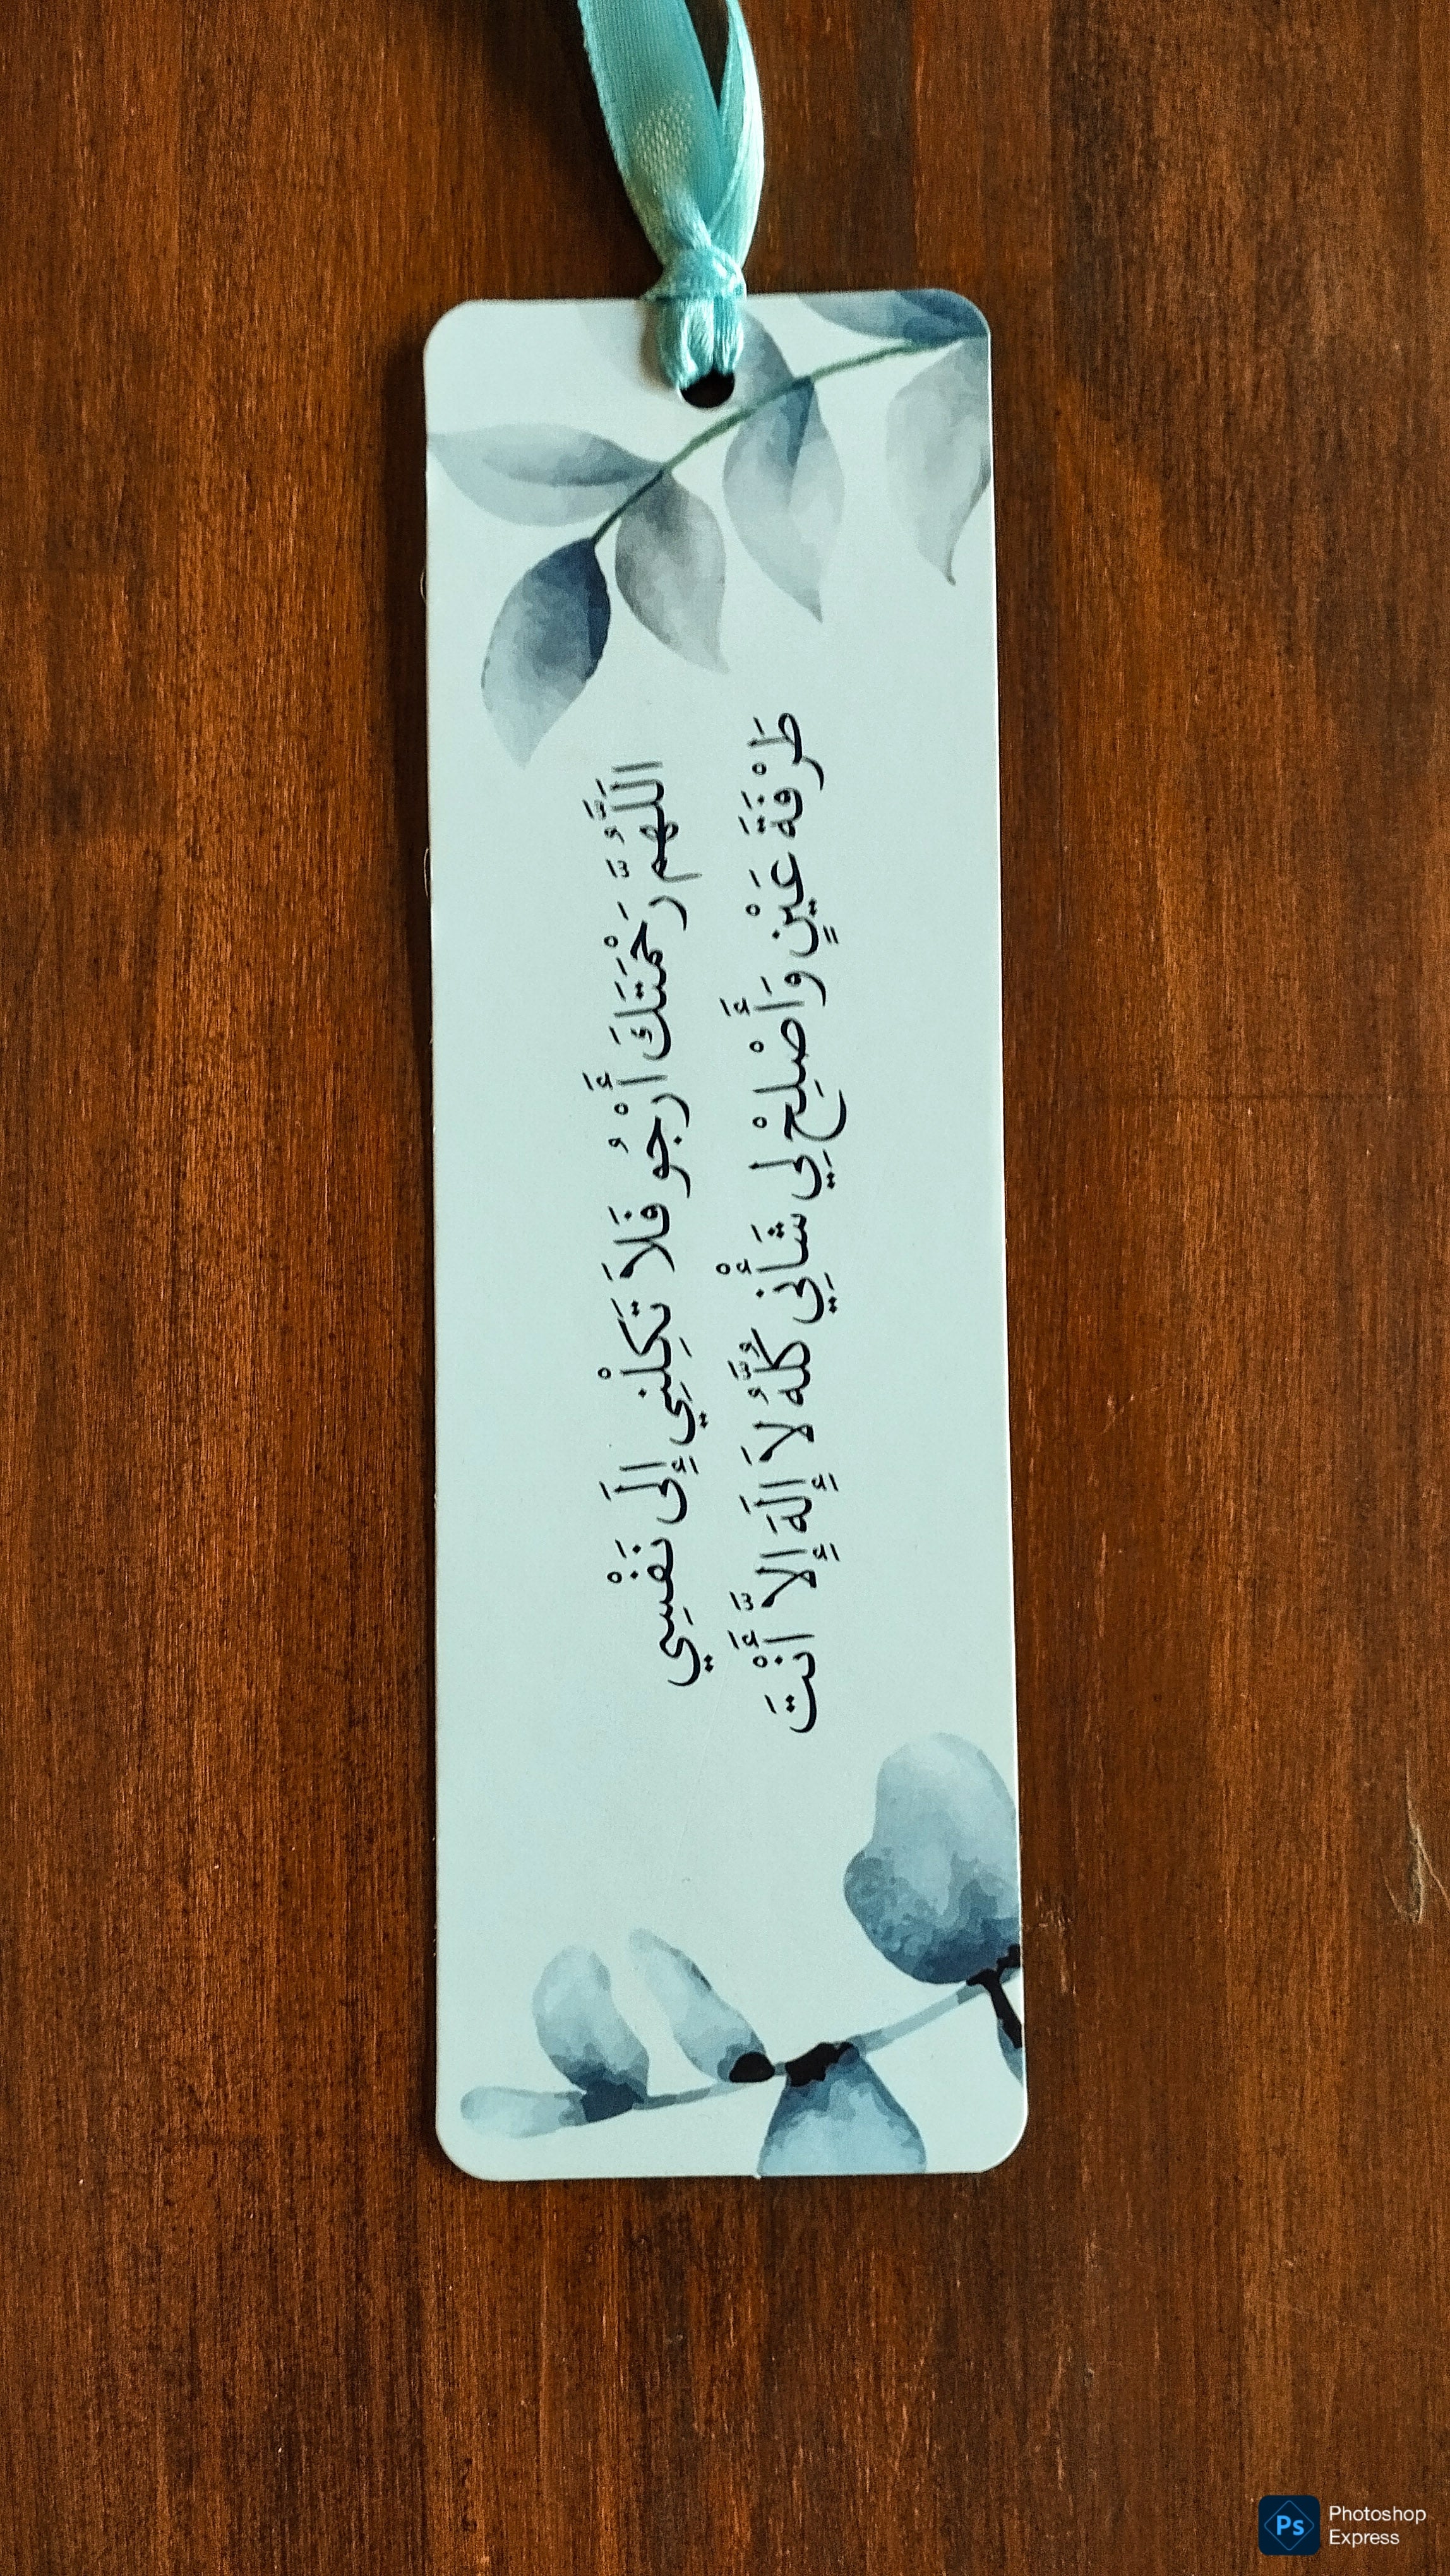 اللَّهُمَّ رَحْمَتَكَ أَرْجُو فَلاَ تَكِلْنِي إِلَى نَفْسِي
طَرْفَةَ عَيْنٍ وَأَصْلِحْ لِي شَأْنِي كُلَّهُ لاَ إِلَهَ إِلاَّ أَنْتَ
Ps
Photoshop
Express